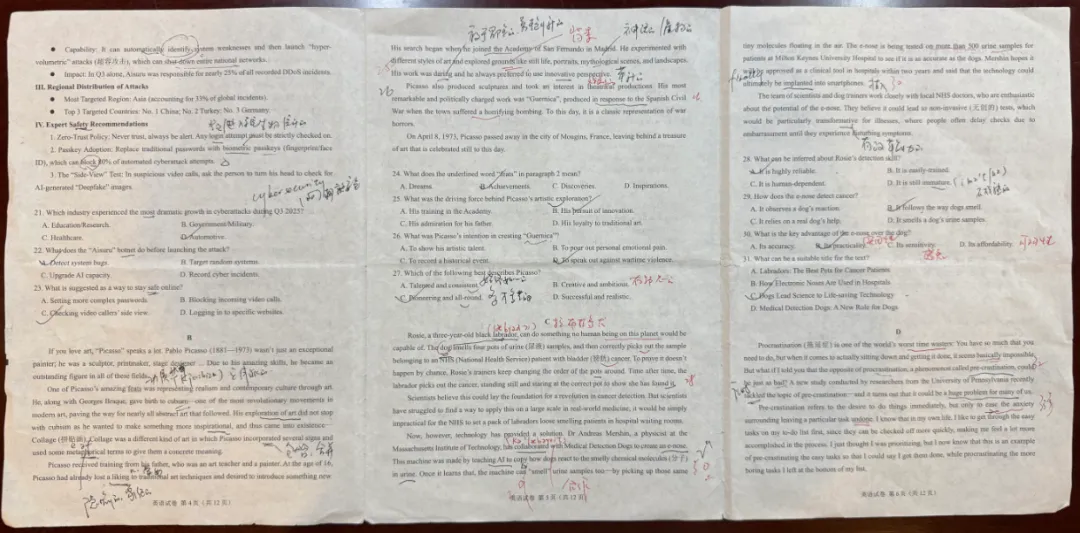 ● Capability: It can automatically identify system weaknesses and then launch "hyper-
volumetric" attacks (超容攻击), which can shut down entire national networks.
● Impact: In Q3 alone, Aisuru was responsible for nearly 25% of all recorded DDoS incidents.
III. Regional Distribution of Attacks
● Most Targeted Region: Asia (accounting for 33% of global incidents).
● Top 3 Targeted Countries: No. 1 China; No. 2 Turkey; No. 3 Germany.
IV. Expert Safety Recommendations
1. Zero-Trust Policy: Never trust, always be alert. Any login attempt must be strictly checked on.
2. Passkey Adoption: Replace traditional passwords with biometric passkeys (fingerprint/face
ID), which can block 80% of automated cyberattack attempts.
3. The "Side-View" Test: In suspicious video calls, ask the person to turn his head to check for
AI-generated "Deepfake" images.
cybersecurity
21. Which industry experienced the most dramatic growth in cyberattacks during Q3 2025?
A. Education/Research. B. Government/Military.
C. Healthcare. D. Automotive.
22. What does the "Aisuru" botnet do before launching the attack?
A. Detect system bugs. B. Target random systems.
C. Upgrade AI capacity. D. Record cyber incidents.
23. What is suggested as a way to stay safe online?
A. Setting more complex passwords. B. Blocking incoming video calls.
C. Checking video callers' side view. D. Logging in to specific websites.
B
If you love art, "Picasso" speaks a lot. Pablo Picasso (1881—1973) wasn't just an exceptional
painter; he was a sculptor, printmaker, stage designer ... Due to his amazing skills, he became an
outstanding figure in all of these fields.
One of Picasso's amazing feats was representing realism and contemporary culture through art.
He, along with Georges Braque, gave birth to cubism—one of the most revolutionary movements in
modern art, paving the way for nearly all abstract art that followed. His exploration of art did not stop
with cubism as he wanted to make something more inspirational, and thus came into existence—
Collage (拼贴画). Collage was a different kind of art in which Picasso incorporated several signs and
used some metaphorical terms to give them a concrete meaning.
Picasso received training from his father, who was an art teacher and a painter. At the age of 16,
Picasso had already lost a liking to traditional art techniques and desired to introduce something new.
英语试卷 第 4 页（共 12 页）
His search began when he joined the Academy of San Fernando in Madrid. He experimented with
different styles of art and explored grounds like still life, portraits, mythological scenes, and landscapes.
His work was daring and he always preferred to use innovative perspective.
Picasso also produced sculptures and took an interest in theatrical productions. His most
remarkable and politically charged work was "Guernica", produced in response to the Spanish Civil
War when the town suffered a horrifying bombing. To this day, it is a classic representation of war
horrors.
On April 8, 1973, Picasso passed away in the city of Mougins, France, leaving behind a treasure
of art that is celebrated still to this day.
24. What does the underlined word "feats" in paragraph 2 mean?
A. Dreams. B. Achievements. C. Discoveries. D. Inspirations.
25. What was the driving force behind Picasso's artistic exploration?
A. His training in the Academy. B. His pursuit of innovation.
C. His admiration for his father. D. His loyalty to traditional art.
26. What was Picasso's intention in creating "Guernica"?
A. To show his artistic talent. B. To pour out personal emotional pain.
C. To record a historical event. D. To speak out against wartime violence.
27. Which of the following best describes Picasso?
A. Talented and consistent. B. Creative and ambitious.
C. Pioneering and all-round. D. Successful and realistic.
C
Rosie, a three-year-old black labrador, can do something no human being on this planet would be
capable of. The dog smells four pots of urine (尿液) samples, and then correctly picks out the sample
belonging to an NHS (National Health Service) patient with bladder (膀胱) cancer. To prove it doesn't
happen by chance, Rosie's trainers keep changing the order of the pots around. Time after time, the
labrador picks out the cancer, standing still and staring at the correct pot to show she has found it.
Scientists believe this could lay the foundation for a revolution in cancer detection. But scientists
have struggled to find a way to apply this on a large scale in real-world medicine, it would be simply
impractical for the NHS to set a pack of labradors loose smelling patients in hospital waiting rooms.
Now, however, technology has provided a solution. Dr Andreas Mershin, a physicist at the
Massachusetts Institute of Technology, has collaborated with Medical Detection Dogs to create an e-nose.
This machine was made by teaching AI to copy how dogs react to the smelly chemical molecules (分子)
in urine. Once it learns that, the machine can "smell" urine samples too—by picking up those same
英语试卷 第 5 页（共 12 页）
tiny molecules floating in the air. The e-nose is being tested on more than 500 urine samples for
patients at Milton Keynes University Hospital to see if it is as accurate as the dogs. Mershin hopes it
will be approved as a clinical tool in hospitals within two years and said that the technology could
ultimately be implanted into smartphones.
The team of scientists and dog trainers work closely with local NHS doctors, who are enthusiastic
about the potential of the e-nose. They believe it could lead to non-invasive (无创的) tests, which
would be particularly transformative for illnesses, where people often delay checks due to
embarrassment until they experience disturbing symptoms.
28. What can be inferred about Rosie's detection skill?
A. It is highly reliable. B. It is easily-trained.
C. It is human-dependent. D. It is still immature.
29. How does the e-nose detect cancer?
A. It observes a dog's reaction. B. It follows the way dogs smell.
C. It relies on real dog's help. D. It smells a dog's urine samples.
30. What is the key advantage of the e-nose over the dog?
A. Its accuracy. B. Its practicality. C. Its sensitivity. D. Its affordability.
31. What can be a suitable title for the text?
A. Labradors: The Best Pets for Cancer Patients
B. How Electronic Noses Are Used in Hospitals
C. Dogs Lead Science to Life-saving Technology
D. Medical Detection Dogs: A New Role for Dogs
D
Procrastination (拖延症) is one of the world's worst time wasters. You have so much that you
need to do, but when it comes to actually sitting down and getting it done, it seems basically impossible.
But what if I told you that the opposite of procrastination, a phenomenon called pre-crastination, could
be just as bad? A new study conducted by researchers from the University of Pennsylvania recently
tackled the topic of pre-crastination—and it turns out that it could be a huge problem for many of us.
Pre-crastination refers to the desire to do things immediately, but only to ease the anxiety
surrounding leaving a particular task undone. I know that in my own life, I like to get through the easy
tasks on my to-do list first, since they can be checked off more quickly, making me feel a lot more
accomplished in the process. I just thought I was prioritizing, but I now know that this is an example
of pre-crastinating the easy tasks so that I could say I got them done, while procrastinating the more
boring tasks left at the bottom of my list.
英语试卷 第 6 页（共 12 页）